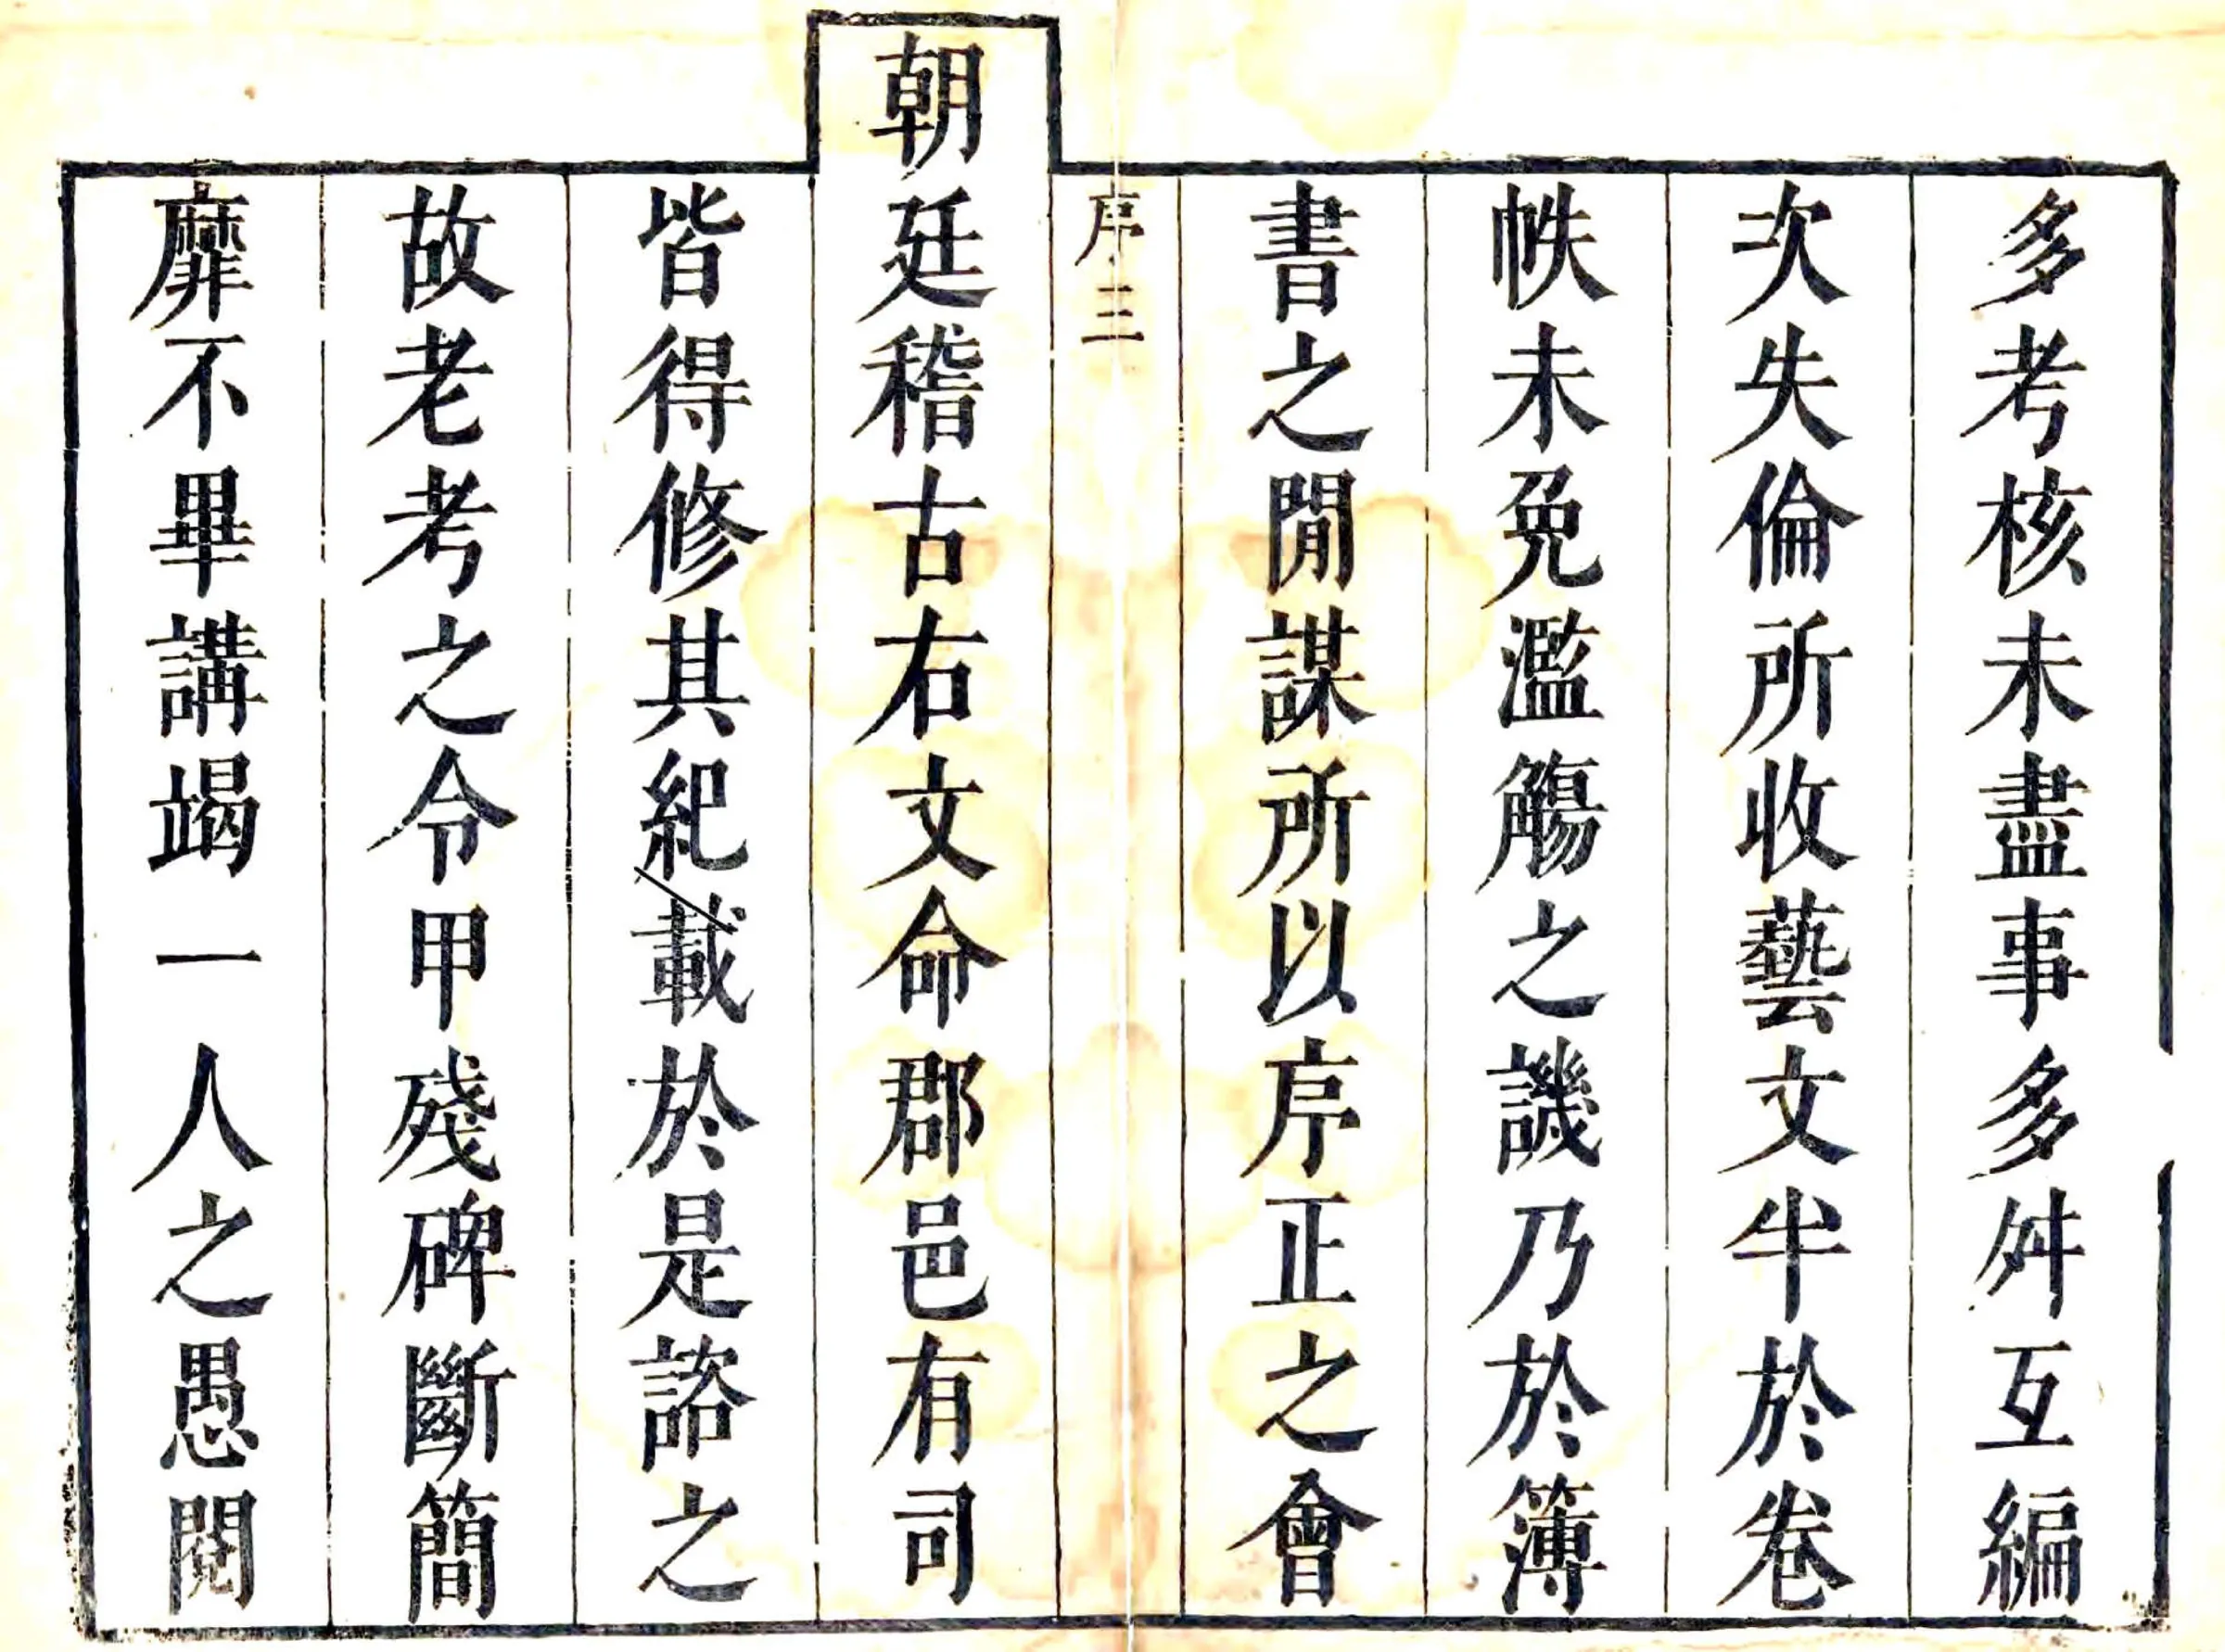 多考核未盡事多舛互編
次失倫所收藝文半於卷
帙未免濫觴之譏乃於簿
書之閒謀所以序正之會
序三
朝廷稽古右文命郡邑有司
皆得修其紀載於是諮之
故老考之令甲殘碑斷簡
靡不畢講竭一人之愚閱